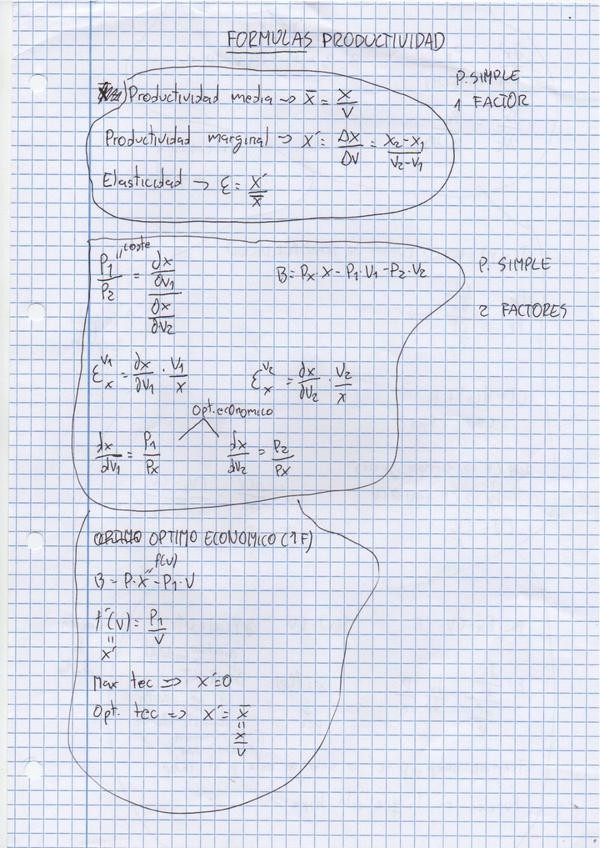 FORMULAS PRODUCTIVIDAD
P. SIMPLE
1 FACTOR
Productividad media → x̄ = X/V
Productividad marginal → X' = ΔX/ΔV = X₂-X₁/V₂-V₁
Elasticidad → Ɛ = X'/x̄
P. SIMPLE
2 FACTORES
coste
P₁/P₂ = (∂x/∂V₁)/(∂x/∂V₂)
B = Pₓ·X - P₁·V₁ - P₂·V₂
Ɛₓ^V₁ = ∂x/∂V₁ · V₁/x
Ɛₓ^V₂ = ∂x/∂V₂ · V₂/x
Opt. economico
∂x/∂V₁ = P₁/Px
∂x/∂V₂ = P₂/Px
OPTIMO ECONOMICO (1F)
f(v)
B = P·X - P₁·V
f'(v) = P₁/V
"
x'
Max tec => X'=0
Opt. tec => X' = x̄
"
x/v